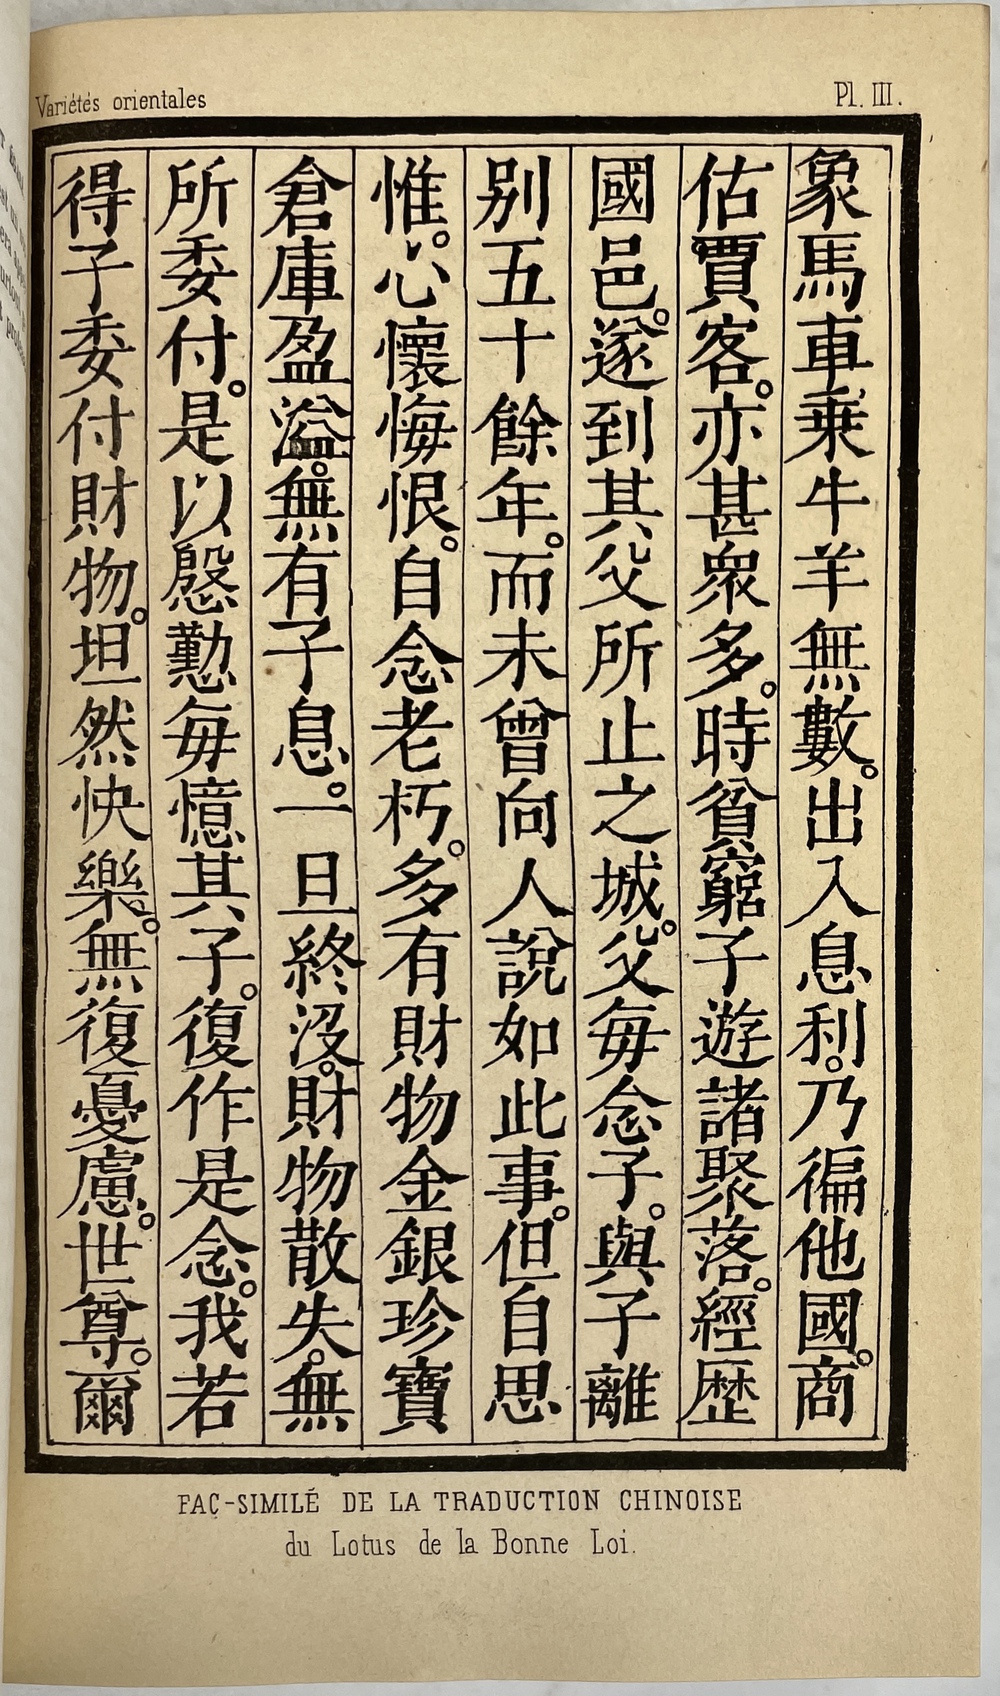 Variétés orientales
Pl. III.
象馬車乗牛羊無數。出入息利。乃徧他國。商
估賈客。亦甚衆多。時貧窮子遊諸聚落。經歷
國邑。遂到其父所止之城。父每念子。與子離
別五十餘年。而未曾向人說如此事。但自思
惟。心懷悔恨。自念老朽。多有財物金銀珍寶
倉庫盈溢。無有子息。一旦終沒。財物散失。無
所委付。是以慇懃每憶其子。復作是念。我若
得子委付財物。坦然快樂。無復憂慮。世尊。爾
FAC-SIMILÉ DE LA TRADUCTION CHINOISE
du Lotus de la Bonne Loi.